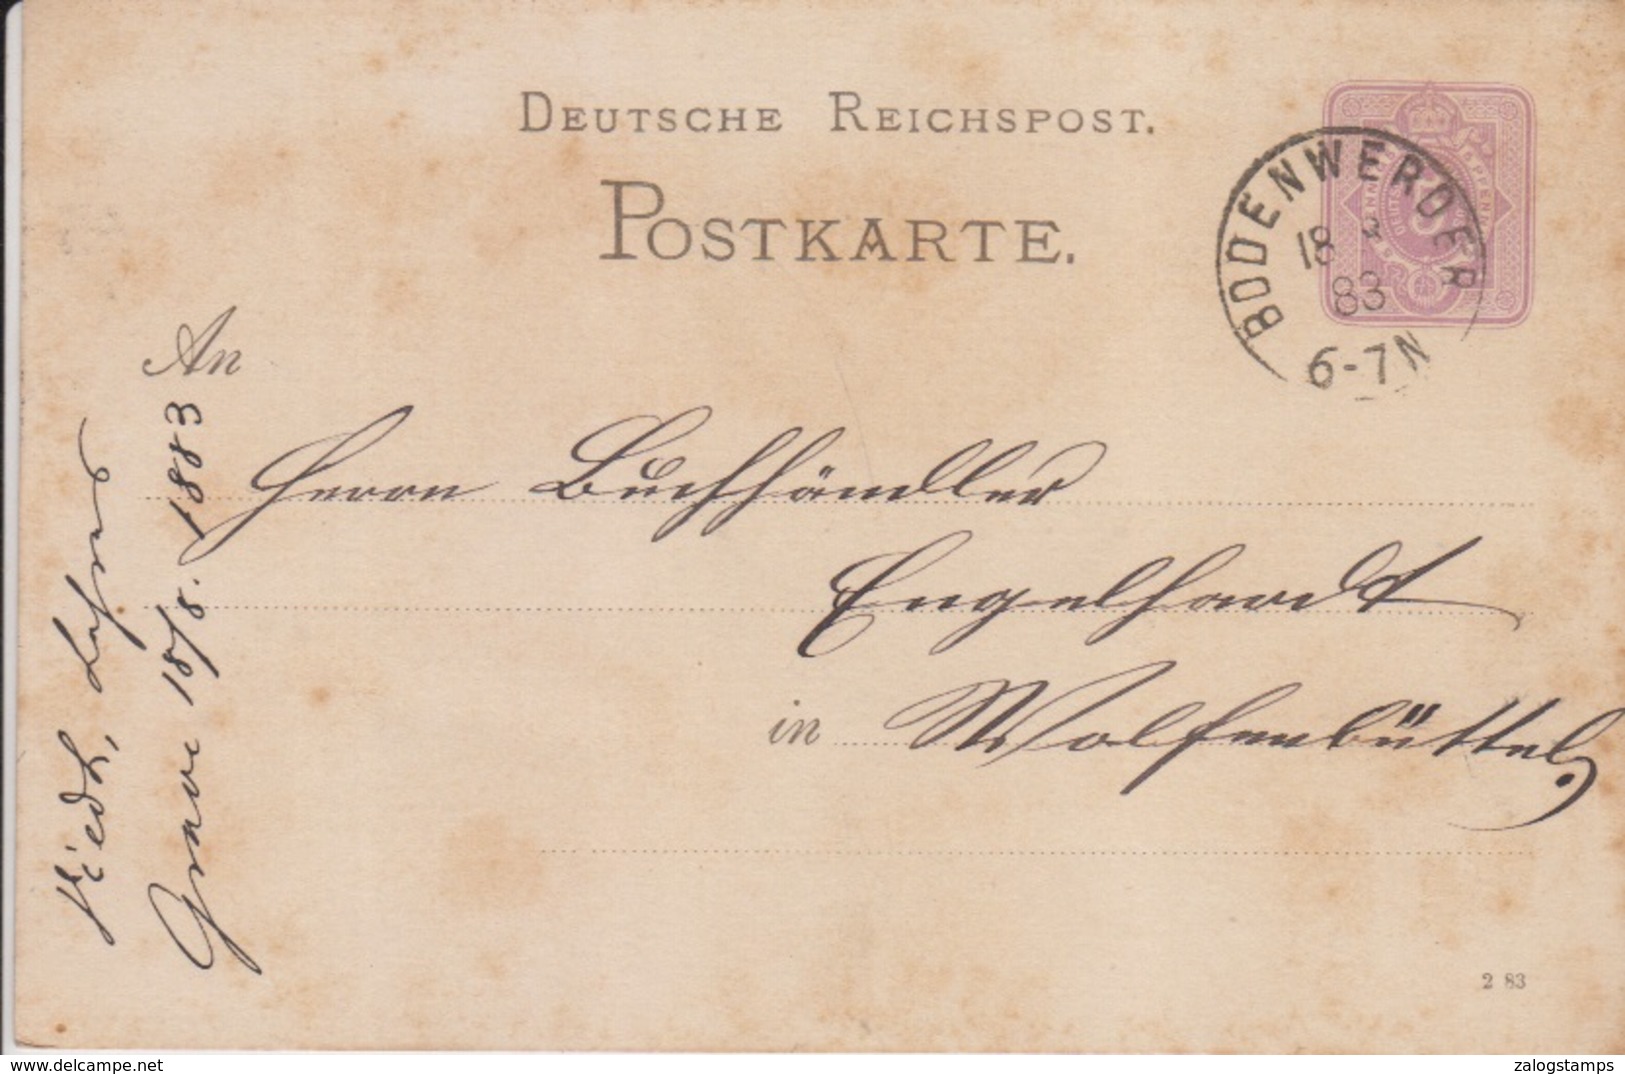 DEUTSCHE REICHSPOST.
POSTKARTE.
BODENWERDER
18 8
83
6-7N
5 PFENNIG
An
Herrn Buchhändler
Engelhardt
in Wolfenbüttel.
Lehrer
Grave 18/8. 1883
2 83
www.delcampe.net
zalogstamps